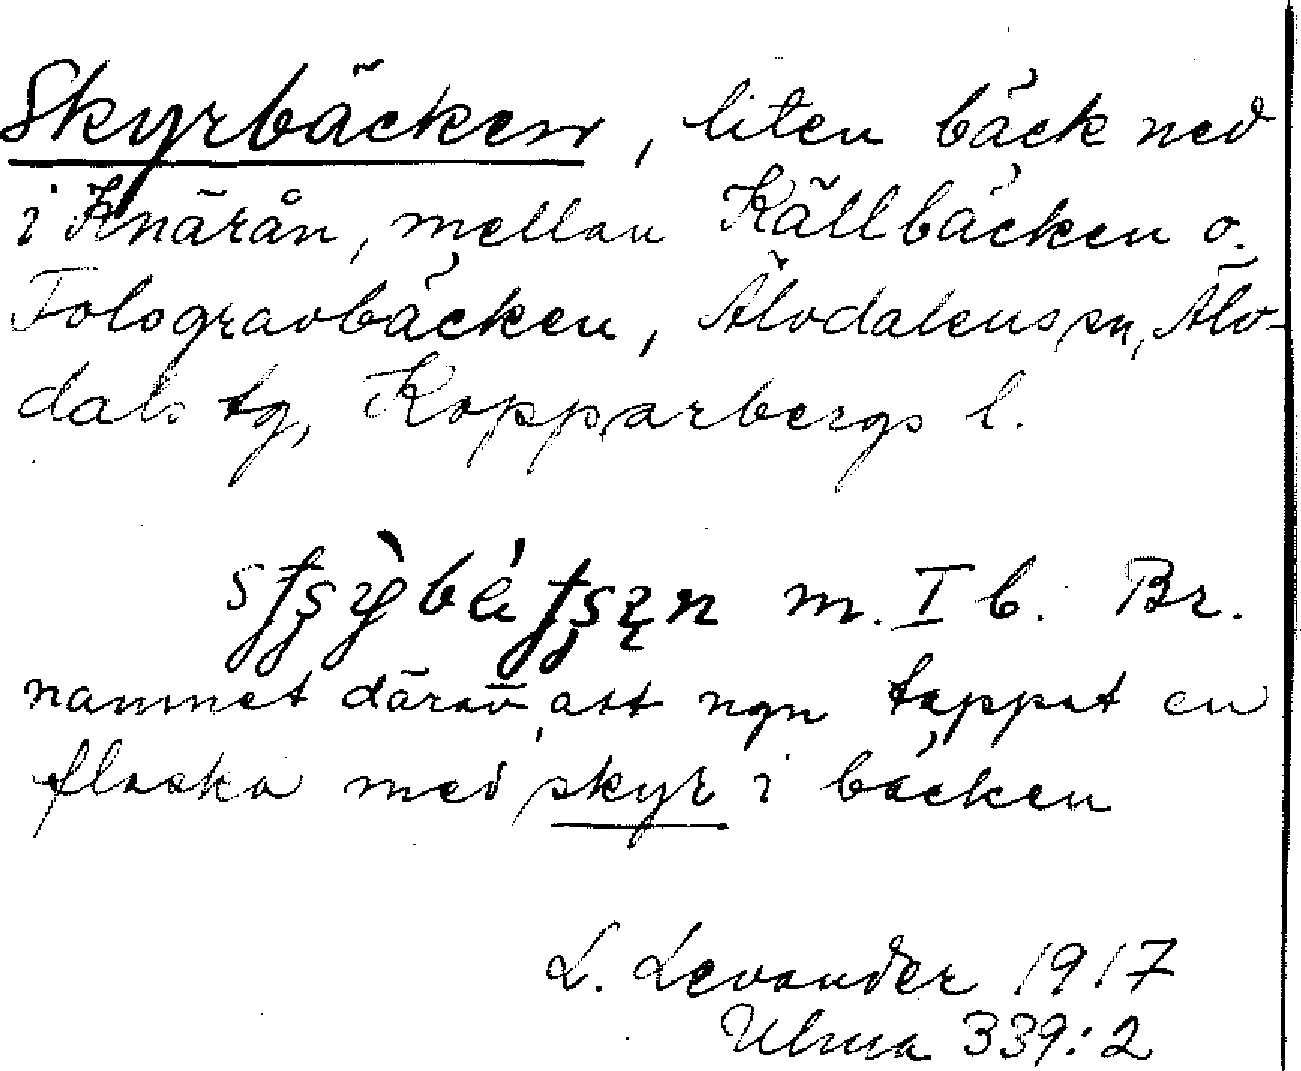 Skyrbäcken, liten bäck ned
i Knärån, mellan Källbäcken o.
Tolsgravbäcken, Älvdalens sn, Älv-
dals tg, Kopparbergs l.
m. I b. Br.
namnet därav, att ngn tappat en
flaska med skyr i bäcken
L. Levander 1917
Ulma 339:2